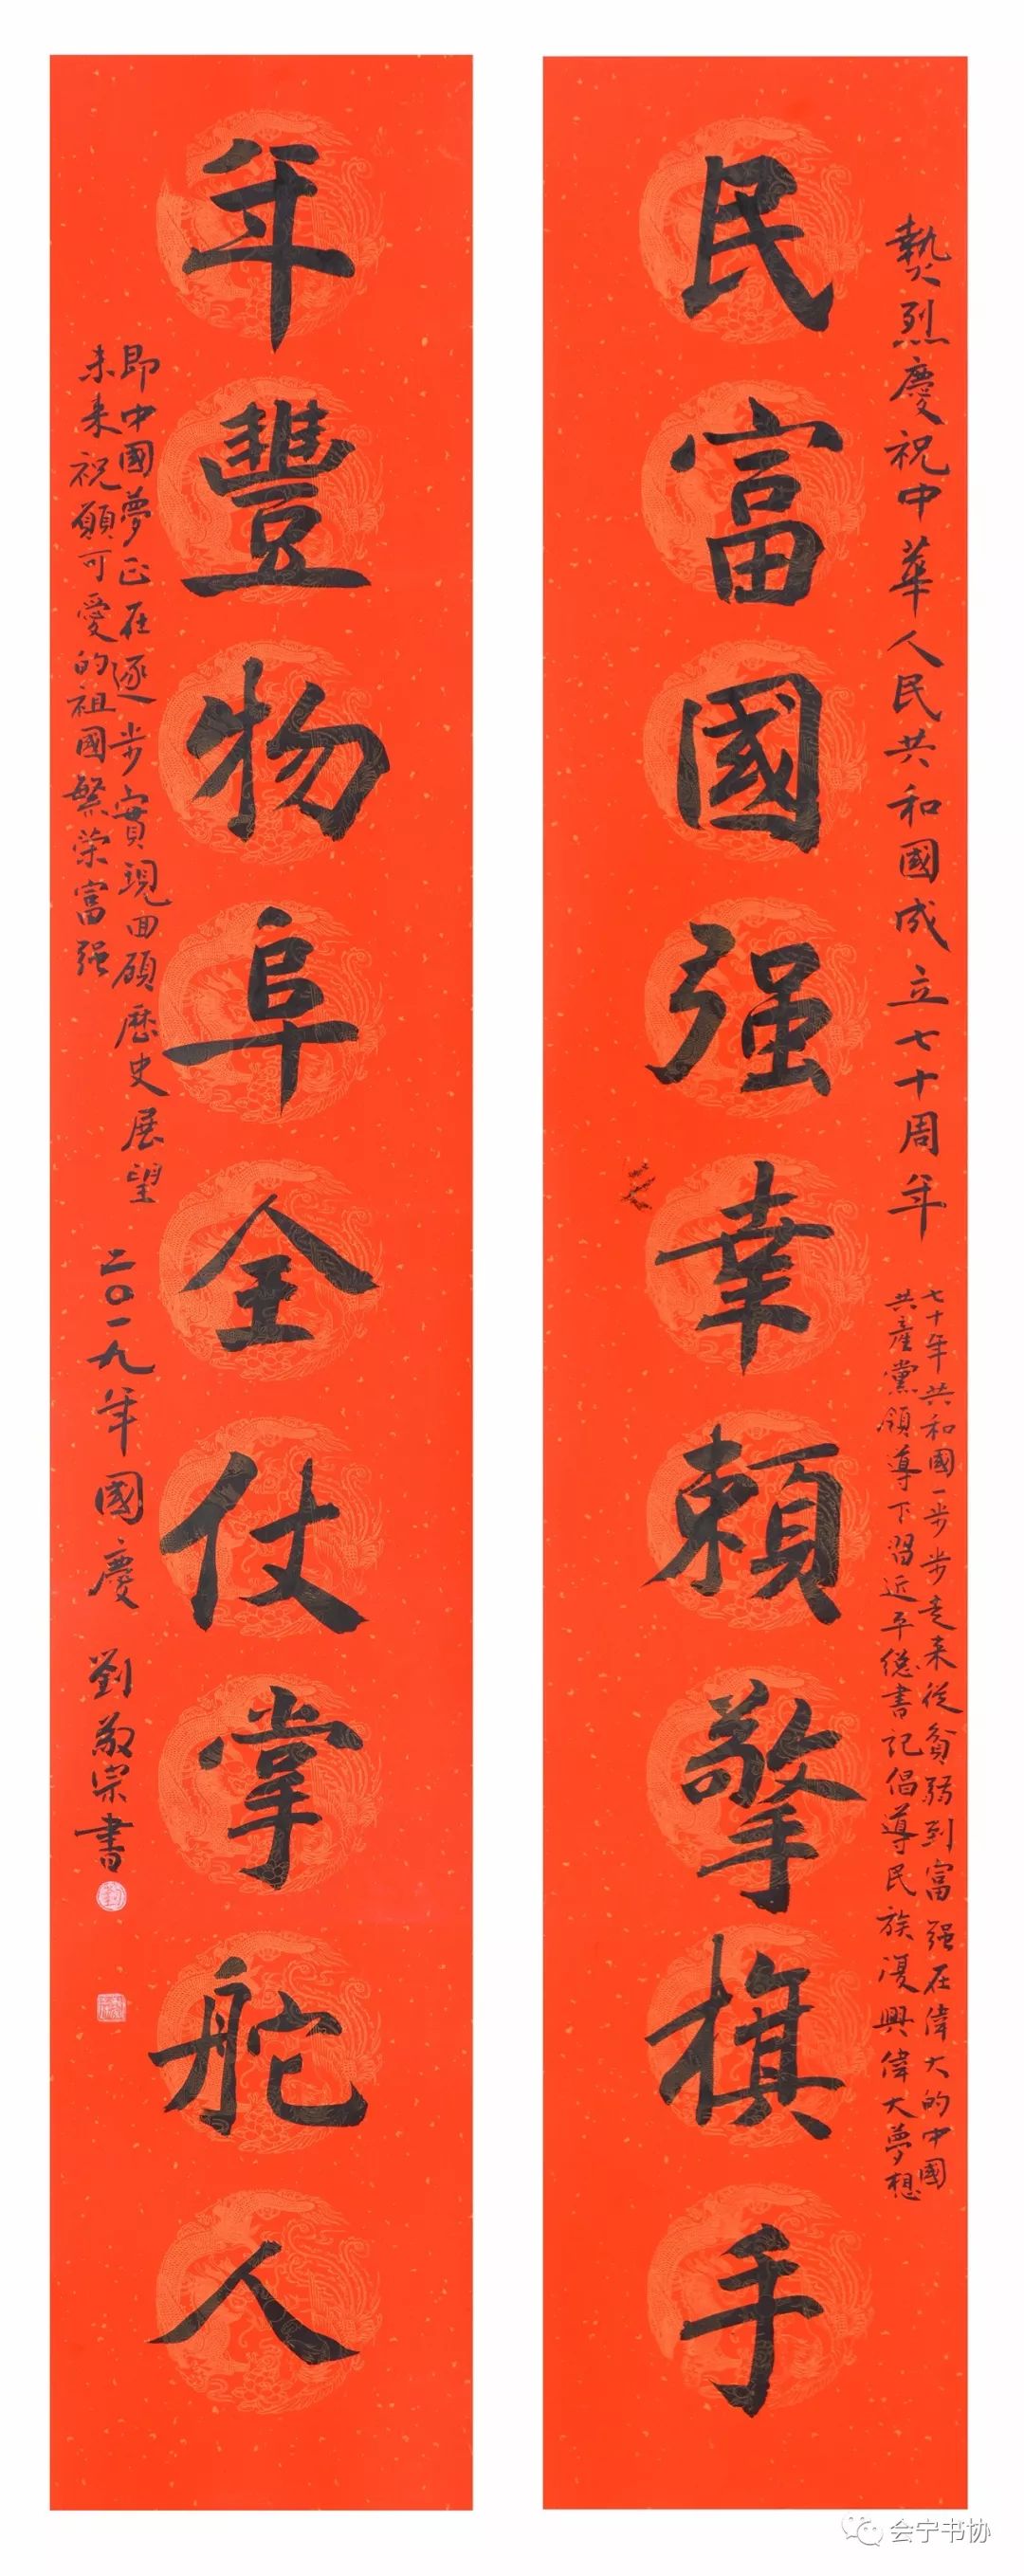 民富國强幸賴擎旗手
熱烈慶祝中華人民共和國成立七十周年
七十年共和國一步步走来從貧弱到富强在偉大的中國
共產黨領導下習近平總書記倡導民族復興偉大夢想
年豐物阜全仗掌舵人
即中國夢正在逐步實現回顧歷史展望
未来祝願可愛的祖國繁荣富强
二〇一九年國慶
劉敬宗書
会宁书协